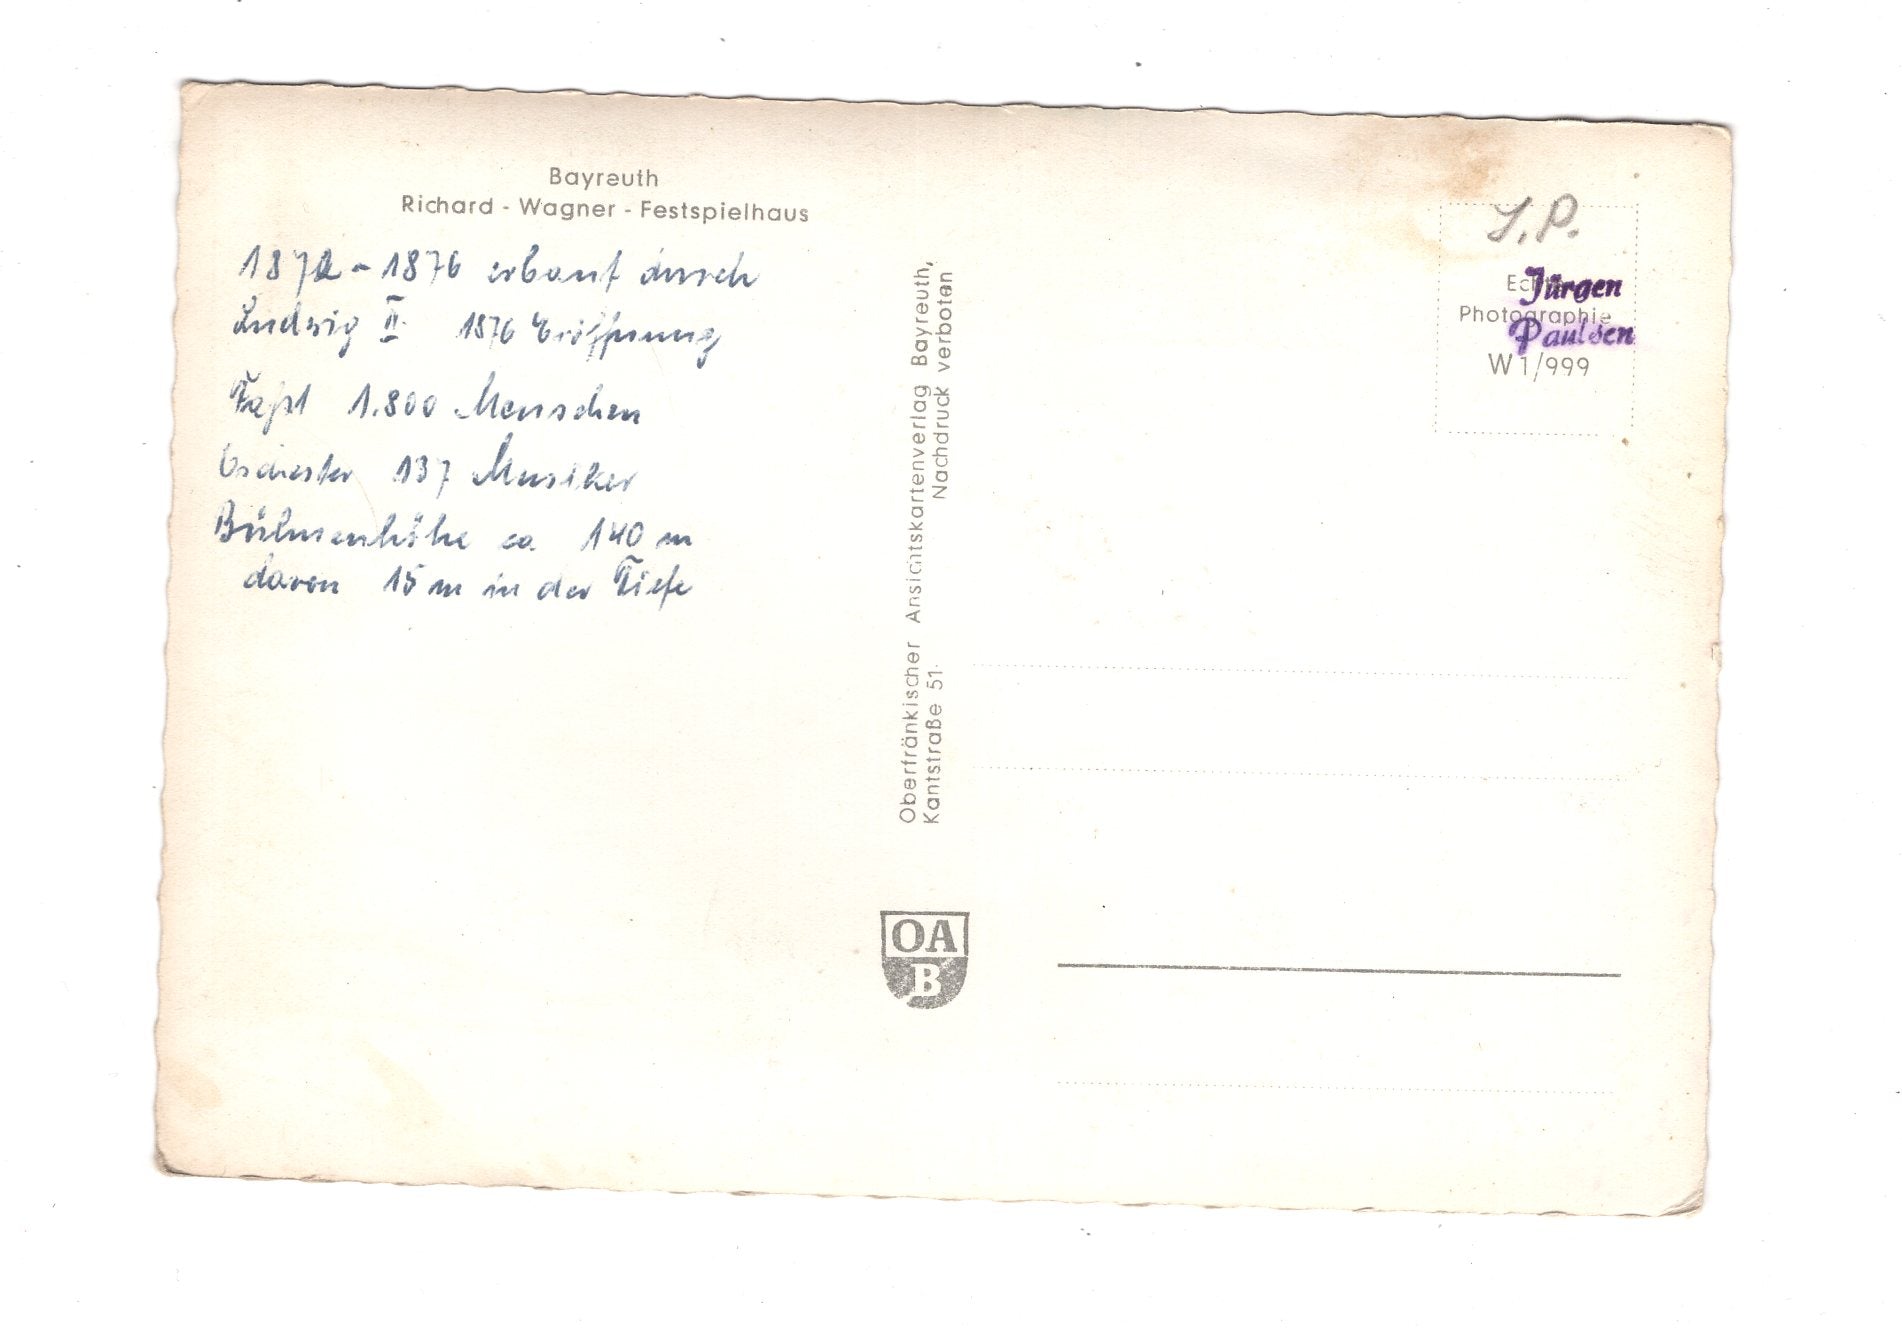 Bayreuth
Richard - Wagner - Festspielhaus
1872 - 1876 erbaut durch
Ludwig II. 1876 Eröffnung
Faßt 1.800 Menschen
Orchester 137 Musiker
Bühnenhöhe ca 140 m
davon 15 m in der Tiefe
Oberfränkischer Ansichtskartenverlag Bayreuth,
Kantstraße 51. Nachdruck verboten
OA
B
J.P.
Echte
Jürgen
Photographie
Paulsen
W 1/999